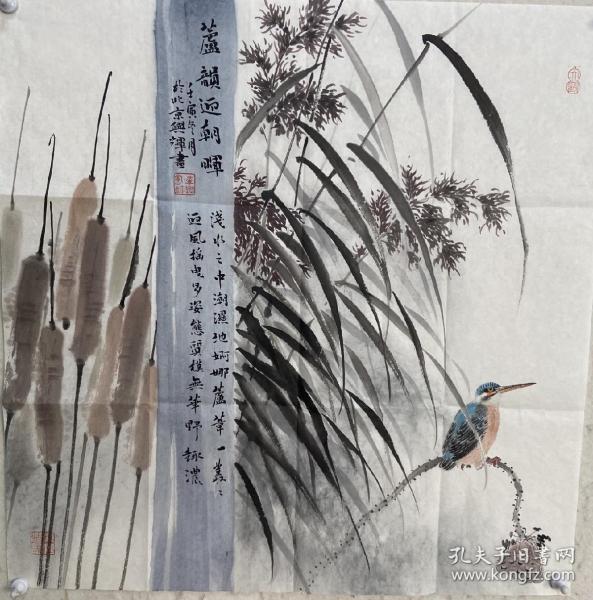 蘆韻迎朝暉
壬寅年冬月
於北京興輝書
淺水之中潮濕地婀娜蘆葦一叢叢
迎風搖曳多姿態質樸無華野趣濃
孔夫子旧书网
www.kongfz.com